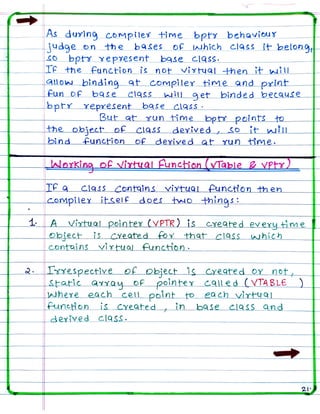 As during compiler time bptr behaviour
judge on the bases of which class it belong,
so bptr represent base class.
If the function is not virtual then it will
allow binding at compiler time and print
fun of base class will get binded because
bptr represent base class.
But at run time bptr points to
the object of class derived, so it will
bind function of derived at run time.
Working of virtual Function (VTable & VPtr)
If a class contains virtual function then
compiler itself does two things:
1. A virtual pointer (VPTR) is created every time
object is created for that class which
contains virtual function.
2. Irrespective of object is created or not,
static array of pointer called (VTABLE)
where each cell point to each virtual
function is created, in base class and
derived class.
21.